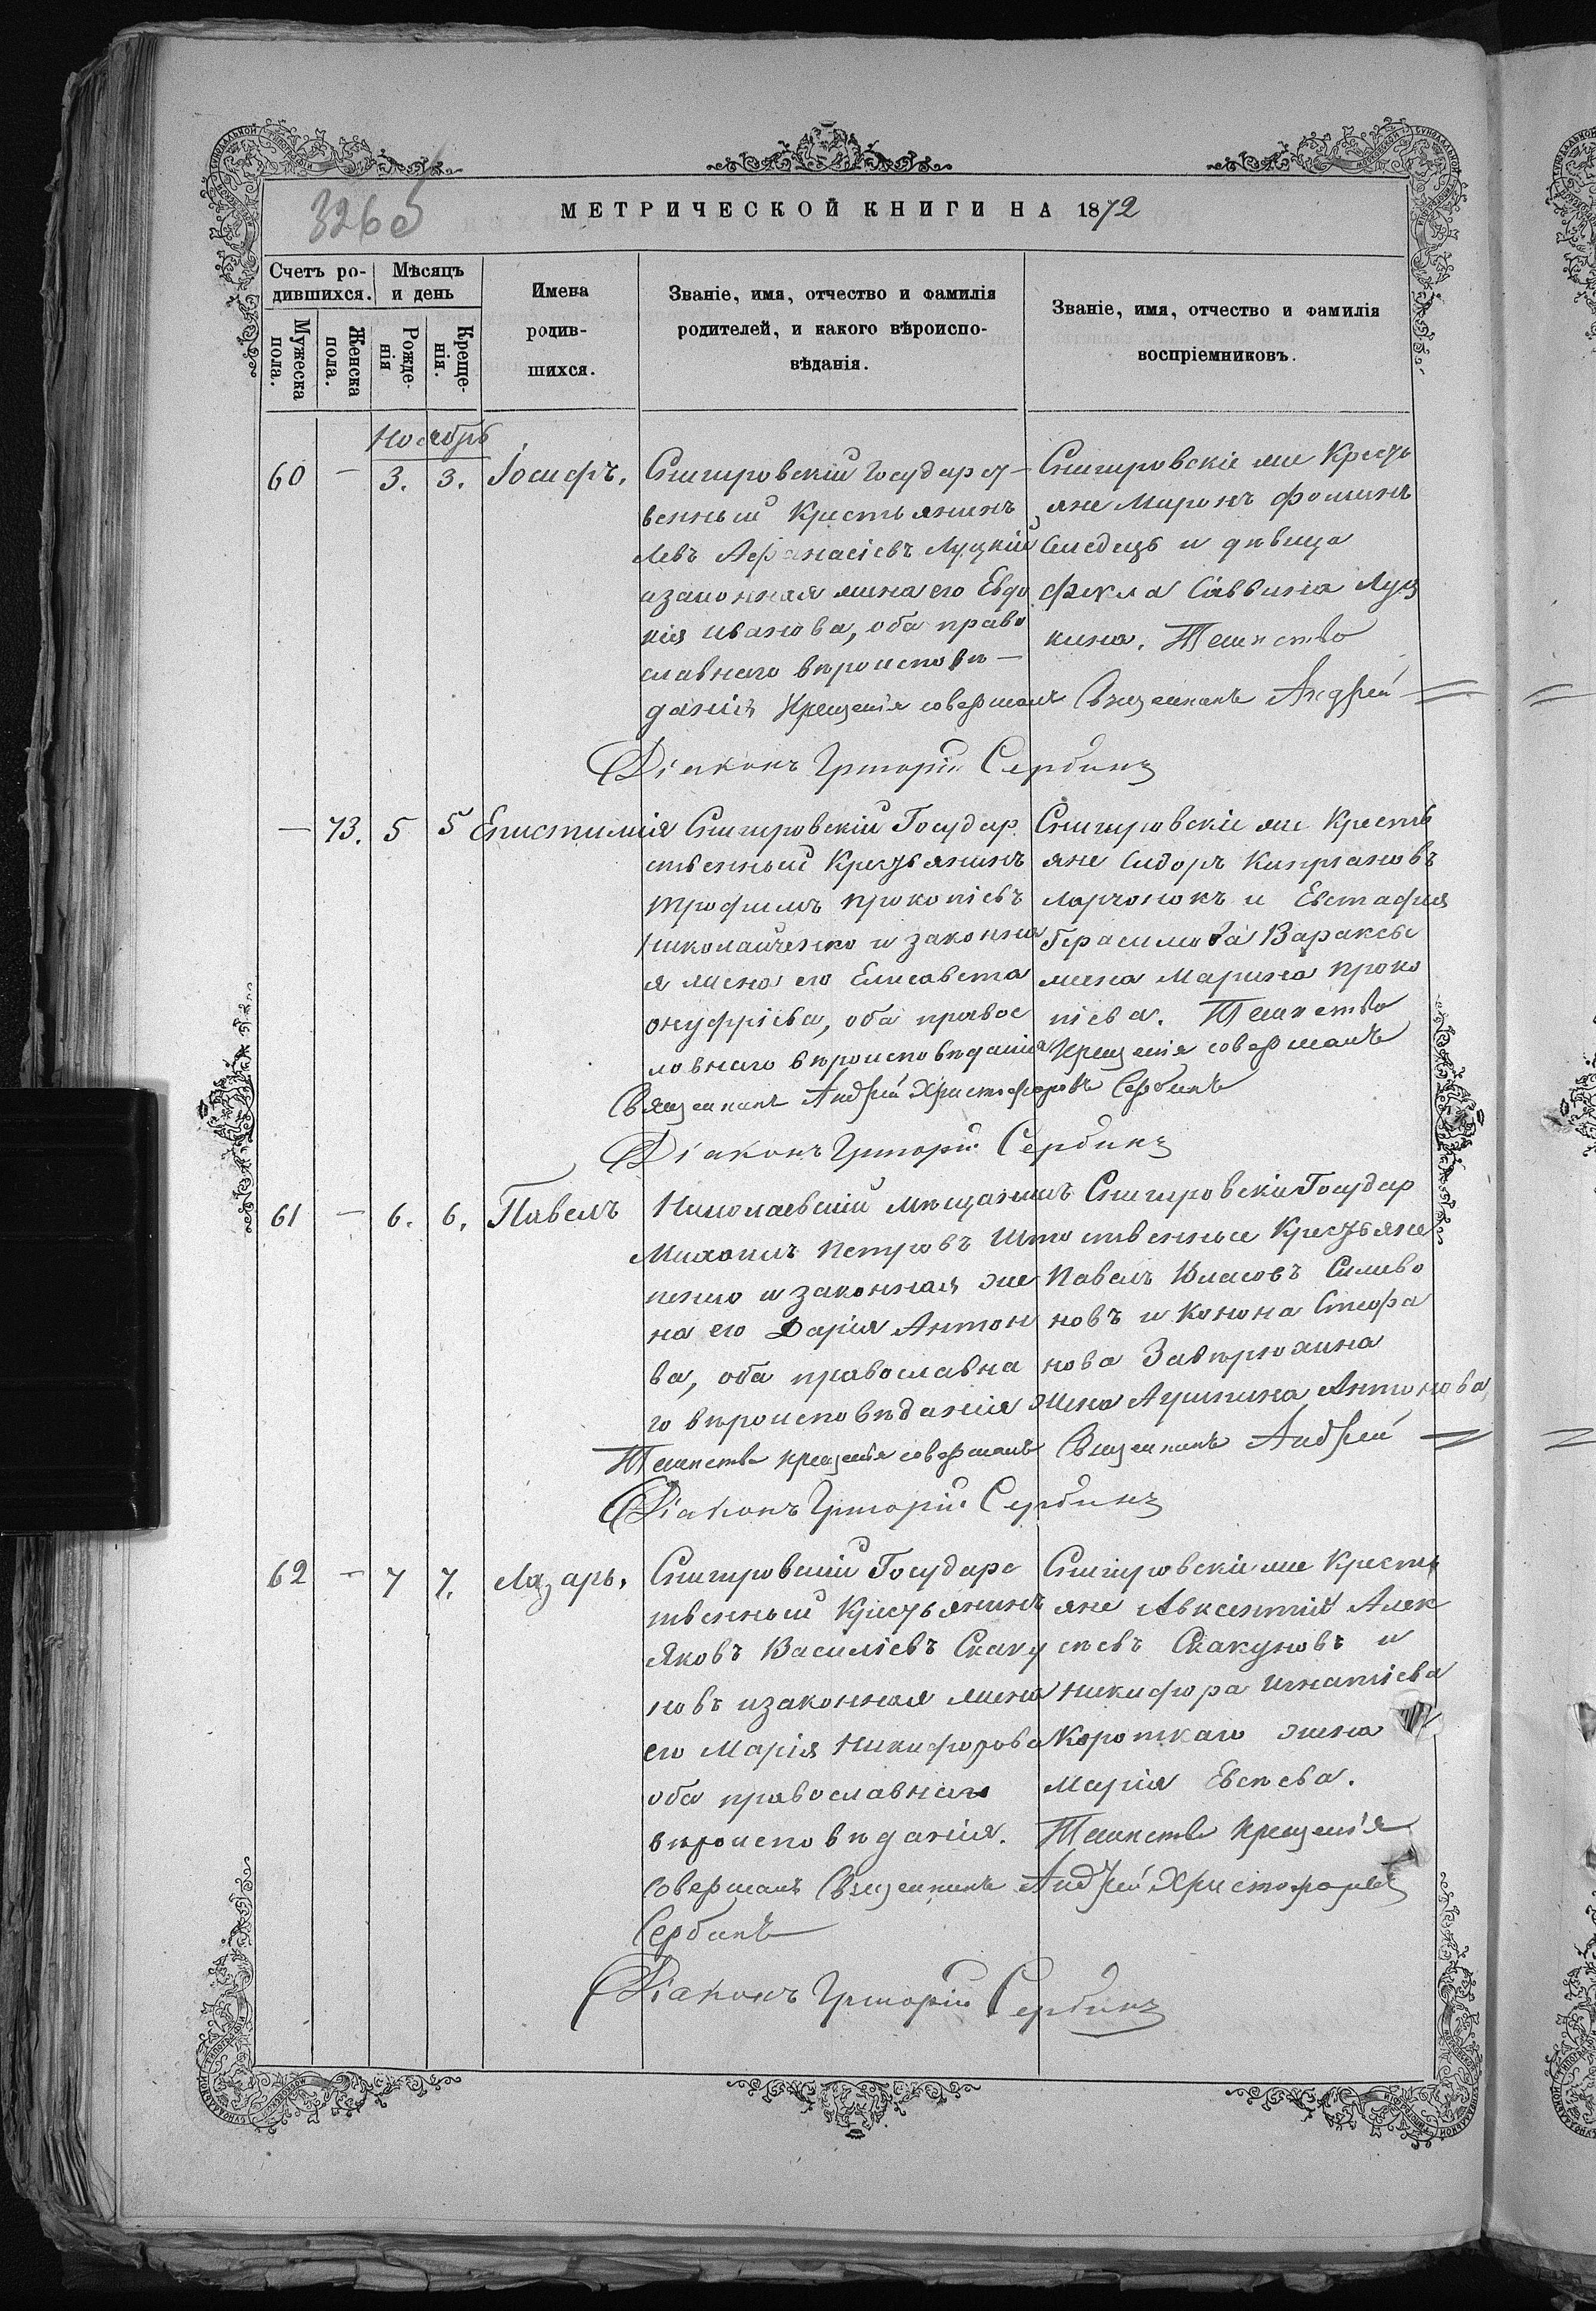 326об
МЕТРИЧЕСКОЙ КНИГИ НА 1872
Счетъ ро-
дившихся.
Мѣсяцъ
и день
Мужеска
пола.
Женска
пола.
Рожде-
нія
Креще-
нія.
Имена
родив-
шихся.
Званіе, имя, отчество и фамилія
родителей, и какого вѣроиспо-
вѣданія.
Званіе, имя, отчество и фамилія
воспріемниковъ.
Ноябрь
60 — 3. 3. Іосифъ.
Снигировскій Государст-
венный Крестьянинъ
Левъ Афанасіевъ Луцкій
изаконная жена его Евдо
кія Иванова, оба право
славнаго вѣроисповѣ—
данія
Снигировскіе же Кресть
яне Миронъ Фоминъ
и дѣвица
Фекла Саввина Луц
кина. Таинство
Крещенія совершалъ Священникъ Андрей
Діаконъ Григорій Сербинъ
— 73. 5 5 Епистимія
Снигировскій Государ
ственный Крестьянинъ
Трофимъ Прокопіевъ
Николайченко и законна
я жена его Елисавета
Онуфріева, оба правос
лавнаго вѣроисповѣданія
Снигировскіе же Кресть
яне Сидоръ Кипріановъ
Ларчонокъ и Евстафія
Герасимова Вараксы
жена Марина Проко
піева. Таинство
Крещенія совершалъ
Священникъ Андрей Христофоровъ Сербинъ
Діаконъ Григорій Сербинъ
61 — 6. 6. Павелъ
Николаевскій Мѣщанинъ
Михаилъ Петровъ
и законная же
на его Дарія Антон
ва, оба православна
го вѣроисповѣданія
Снигировскіе Государ
ственные Крестьяне
Павелъ Власовъ Силиво
новъ и Конона Стефа
нова Завѣрюхина
жена Агрипина Антонова
Таинство крещенія совершалъ Священникъ Андрей
Діаконъ Григорій Сербинъ
62 — 7 7. Лазарь.
Снигировскій Государс
твенный Крестьянинъ
Яковъ Василіевъ Скаку
новъ изаконная жена
его Марія Никифорова
оба православнаго
вѣроисповѣданія.
Снигировскіе же Кресть
яне Авксентій Алек
сѣевъ Скакуновъ и
Никифора Игнатіева
Короткаго жена
Марія Евсѣева.
Таинство Крещенія
совершалъ Священникъ Андрей Христофоровъ
Сербинъ
Діаконъ Григорій Сербинъ